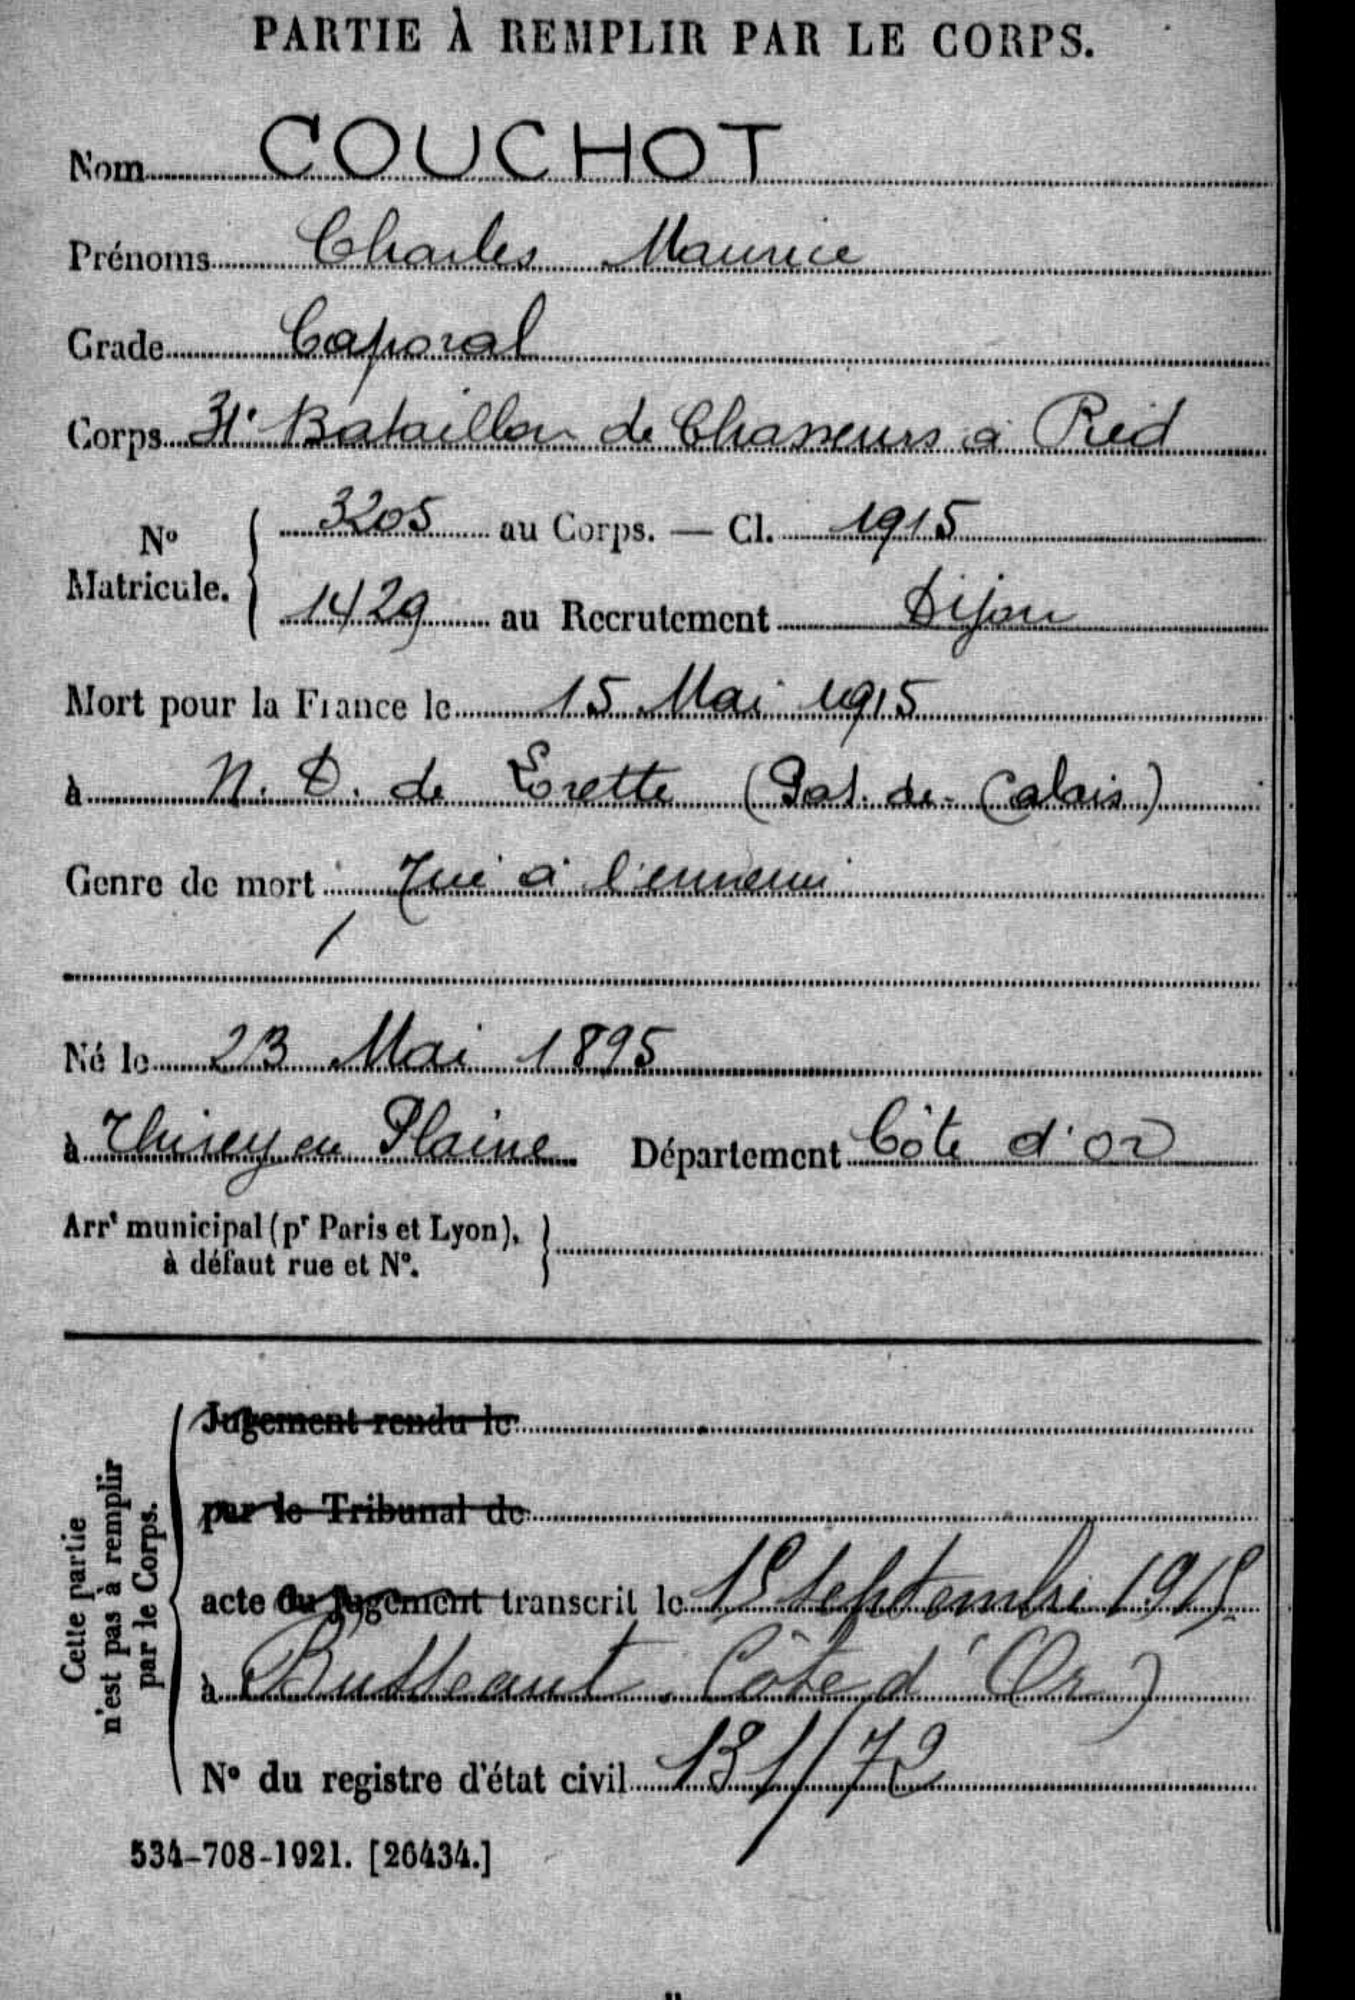 PARTIE À REMPLIR PAR LE CORPS.
Nom COUCHOT
Prénoms Charles Maurice
Grade Caporal
Corps 31e Bataillon de Chasseurs à Pied
No Matricule. 3205 au Corps. — Cl. 1915
1429 au Recrutement Dijon
Mort pour la France le 15 Mai 1915
à N. D. de Lorette (Pas. de- Calais)
Genre de mort Tué à l'ennemi
Né le 23 Mai 1895
à en Plaine Département Côte d'or
Arrt municipal (pr Paris et Lyon),
à défaut rue et No.
Cette partie
n'est pas à remplir
par le Corps.
Jugement rendu le
par le Tribunal de
acte du Jugement transcrit le Septembre
à Busseaut Côte d'Or)
No du registre d'état civil 131/72
534-708-1921. [26434.]